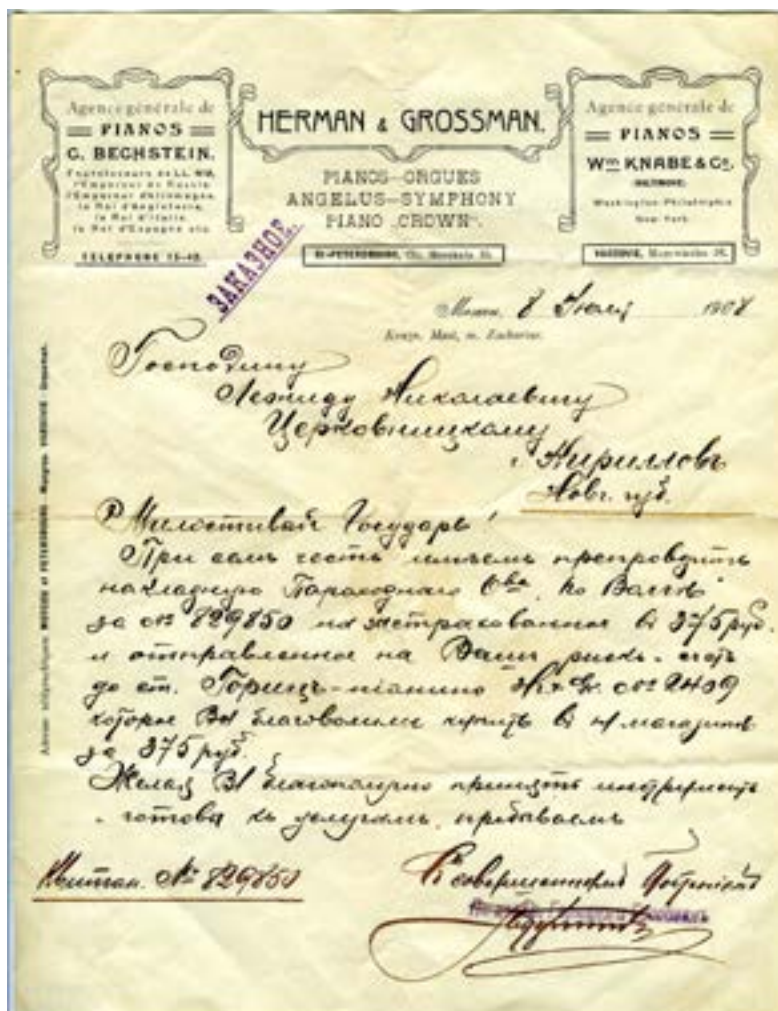 Agence générale de
PIANOS
C. BECHSTEIN.
Fournisseurs de LL. MM.
l'Empereur de Russie
l'Empereur d'Allemagne
le Roi d'Angleterre,
le Roi d'Italie
le Roi d'Espagne etc.
TELEPHONE 15-40.
HERMAN & GROSSMAN.
PIANOS-ORGUES
ANGELUS-SYMPHONY
PIANO „CROWN".
St-PETERSBOURG, Morskaia
Agence générale de
PIANOS
Wm KNABE & Co.
BALTIMORE
Washington-Philadelphia
New York
VARSOVIE,
ЗАКАЗНОЕ.
8 1908
Kouzn. Most, m. Zacharine.
Господину
Леониду Николаевичу
Церковницкому
г. Кирилловъ
Новг. губ.
Милостивый Государь!
При семъ честь имѣемъ препроводить
накладную Пароходнаго О-ва „по Волгѣ"
за № 829850 на застрахованное в 375 руб.
и отправленное на Вашъ рискъ
до ст. Горицы - піанино № 2409
которое Вы благоволили купить в магазинѣ
за 375 руб.
Желая Вы благополучно принять инструментъ
готовы къ услугамъ, пребываемъ
Квитан. № 829850
Съ совершеннымъ Почтеніемъ
MOSCOU et PETERSBOURG